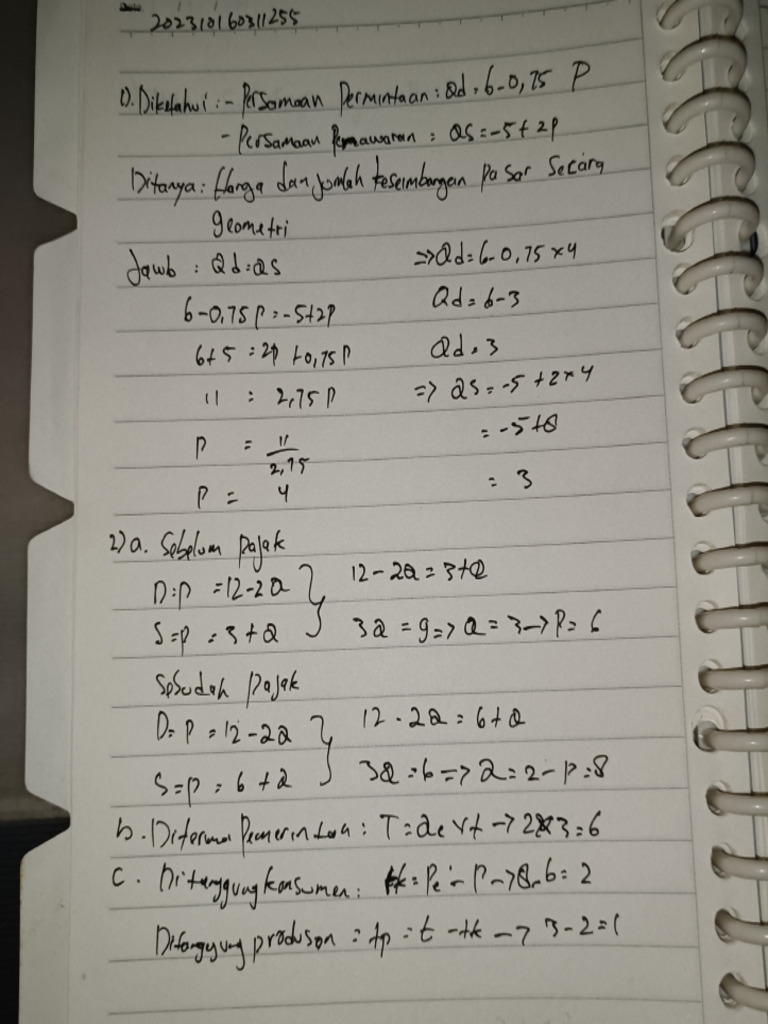 202310160311255
1). Diketahui : - Persamaan Permintaan : Qd = 6 - 0,75 P
- Persamaan Penawaran : QS = -5 + 2P
Ditanya : Harga dan jumlah keseimbangan pasar secara
geometri
Jawb : Qd = QS
6 - 0,75 P = -5 + 2P
6 + 5 = 2P + 0,75 P
11 = 2,75 P
P = 11 / 2,75
P = 4
=> Qd = 6 - 0,75 × 4
Qd = 6 - 3
Qd = 3
=> QS = -5 + 2 × 4
= -5 + 8
= 3
2) a. Sebelum pajak
D = P = 12 - 2Q } 12 - 2Q = 3 + Q
S = P = 3 + Q } 3Q = 9 => Q = 3 -> P = 6
Sesudah pajak
D = P = 12 - 2Q } 12 - 2Q = 6 + Q
S = P = 6 + Q } 3Q = 6 => Q = 2 - P = 8
b. Diterima Pemerintah : T = Qe × t -> 2 × 3 = 6
C. Ditanggung konsumen : tk = Pe' - P -> 8 - 6 = 2
Ditanggung produsen = tp = t - tk -> 3 - 2 = 1